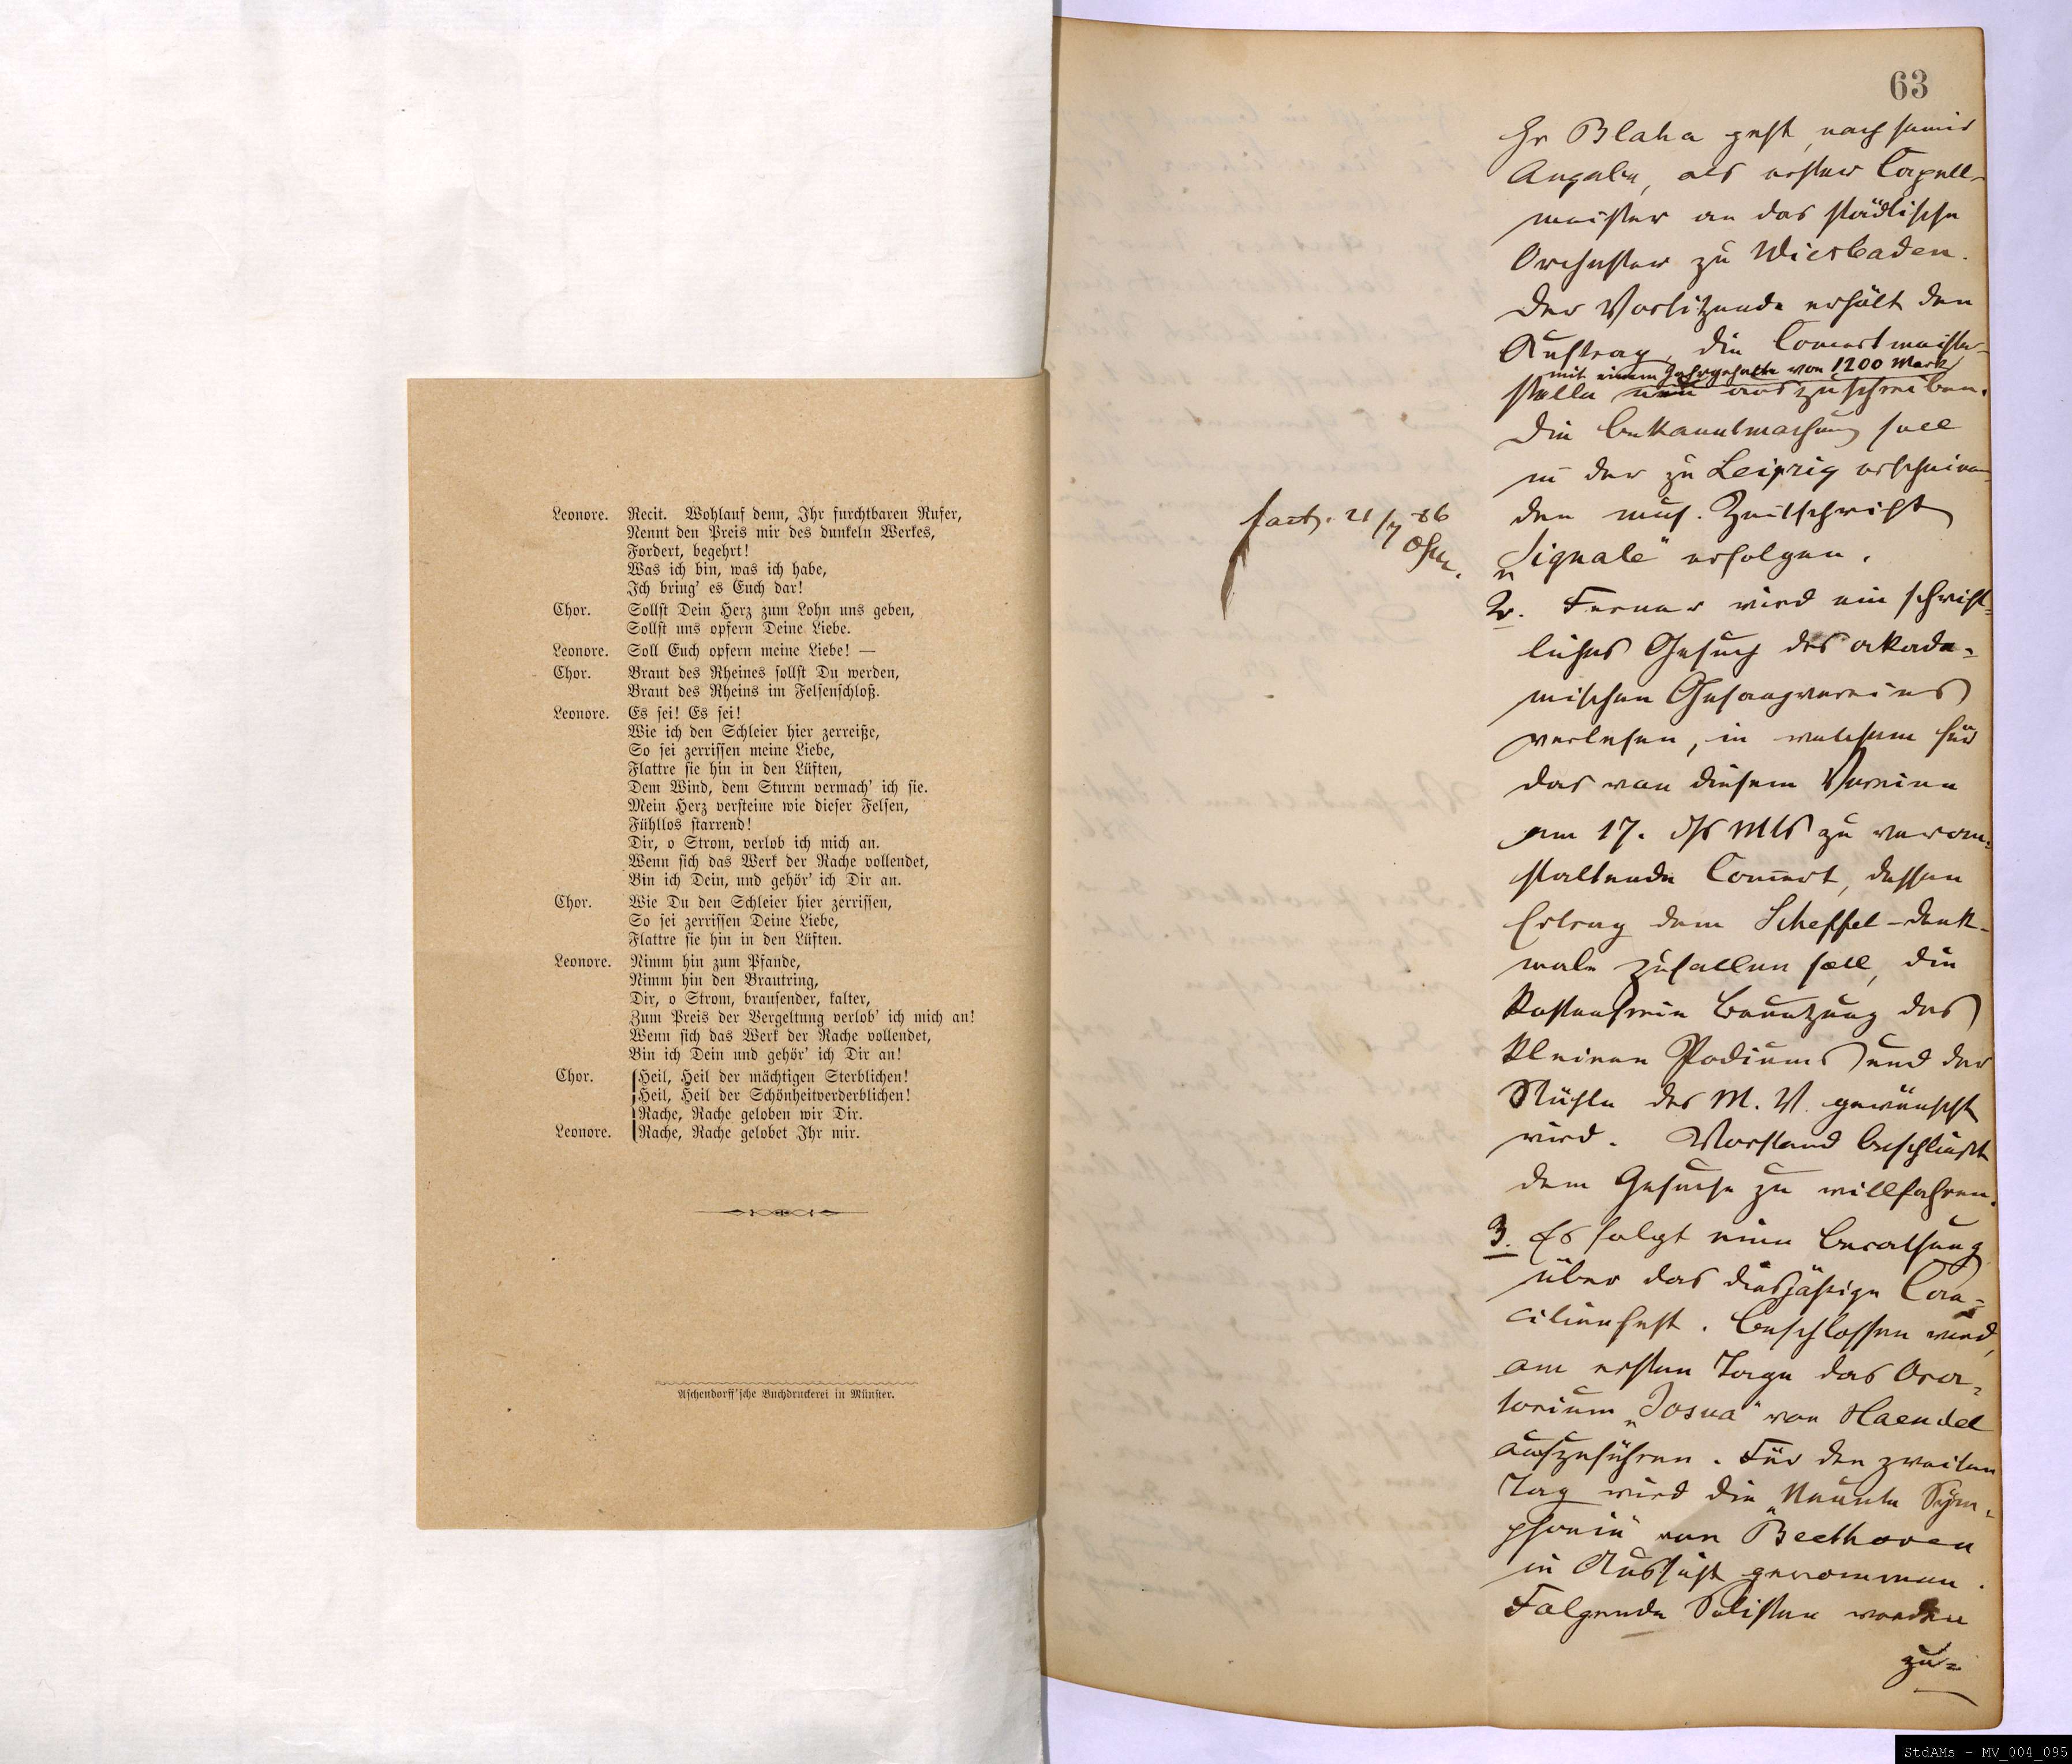 Leonore. Recit. Wohlauf denn, Ihr furchtbaren Rufer,
Nennt den Preis mir des dunkeln Werkes,
Fordert, begehrt!
Was ich bin, was ich habe,
Ich bring' es Euch dar!
Chor. Sollst Dein Herz zum Lohn uns geben,
Sollst uns opfern Deine Liebe.
Leonore. Soll Euch opfern meine Liebe! —
Chor. Braut des Rheines sollst Du werden,
Braut des Rheins im Felsenschloß.
Leonore. Es sei! Es sei!
Wie ich den Schleier hier zerreiße,
So sei zerrissen meine Liebe,
Flattre sie hin in den Lüften,
Dem Wind, dem Sturm vermach' ich sie.
Mein Herz versteine wie dieser Felsen,
Fühllos starrend!
Dir, o Strom, verlob ich mich an.
Wenn sich das Werk der Rache vollendet,
Bin ich Dein, und gehör' ich Dir an.
Chor. Wie Du den Schleier hier zerrissen,
So sei zerrissen Deine Liebe,
Flattre sie hin in den Lüften.
Leonore. Nimm hin zum Pfande,
Nimm hin den Brautring,
Dir, o Strom, brausender, kalter,
Zum Preis der Vergeltung verlob' ich mich an!
Wenn sich das Werk der Rache vollendet,
Bin ich Dein und gehör' ich Dir an!
Chor. Heil, Heil der mächtigen Sterblichen!
Heil, Heil der Schönheitverderblichen!
Rache, Rache geloben wir Dir.
Leonore. Rache, Rache gelobet Ihr mir.
Aschendorff'sche Buchdruckerei in Münster.
63
Hr Blaha geht, nach seiner
Angabe, als erster Capell-
meister an das städtische
Orchester zu Wiesbaden.
Der Vorsitzende erhält den
Auftrag, die Concertmeister-
mit einem Jahrgehalte von 1200 Mark
stelle neu auszuschreiben.
Die Bekanntmachung soll
in der zu Leipzig erscheinen-
den mus. Zeitschrift
„Signale" erfolgen.
fact. 21/7 86
2. Ferner wird ein schrift-
liches Gesuch des akade-
mischen Gesangvereins
verlesen, in welchem für
das von diesem Vereine
am 17. ds Mts zu veran-
staltende Concert, dessen
Ertrag dem Scheffel-Denk-
male zufallen soll, die
kostenfreie Benutzung des
kleinen Podiums und der
Stühle des M. V. gewünscht
wird. Vorstand beschließt
dem Gesuche zu willfahren.
3. Es folgt eine Berathung
über das diesjährige Cae-
cilienfest. Beschlossen wird,
am ersten Tage das Ora-
torium „Josua" von Haendel
aufzuführen. Für den zweiten
Tag wird die „Neunte Sym-
phonie" von Beethoven
in Aussicht genommen.
Folgende Solisten werden
zu-
StdAMs - MV_004_095